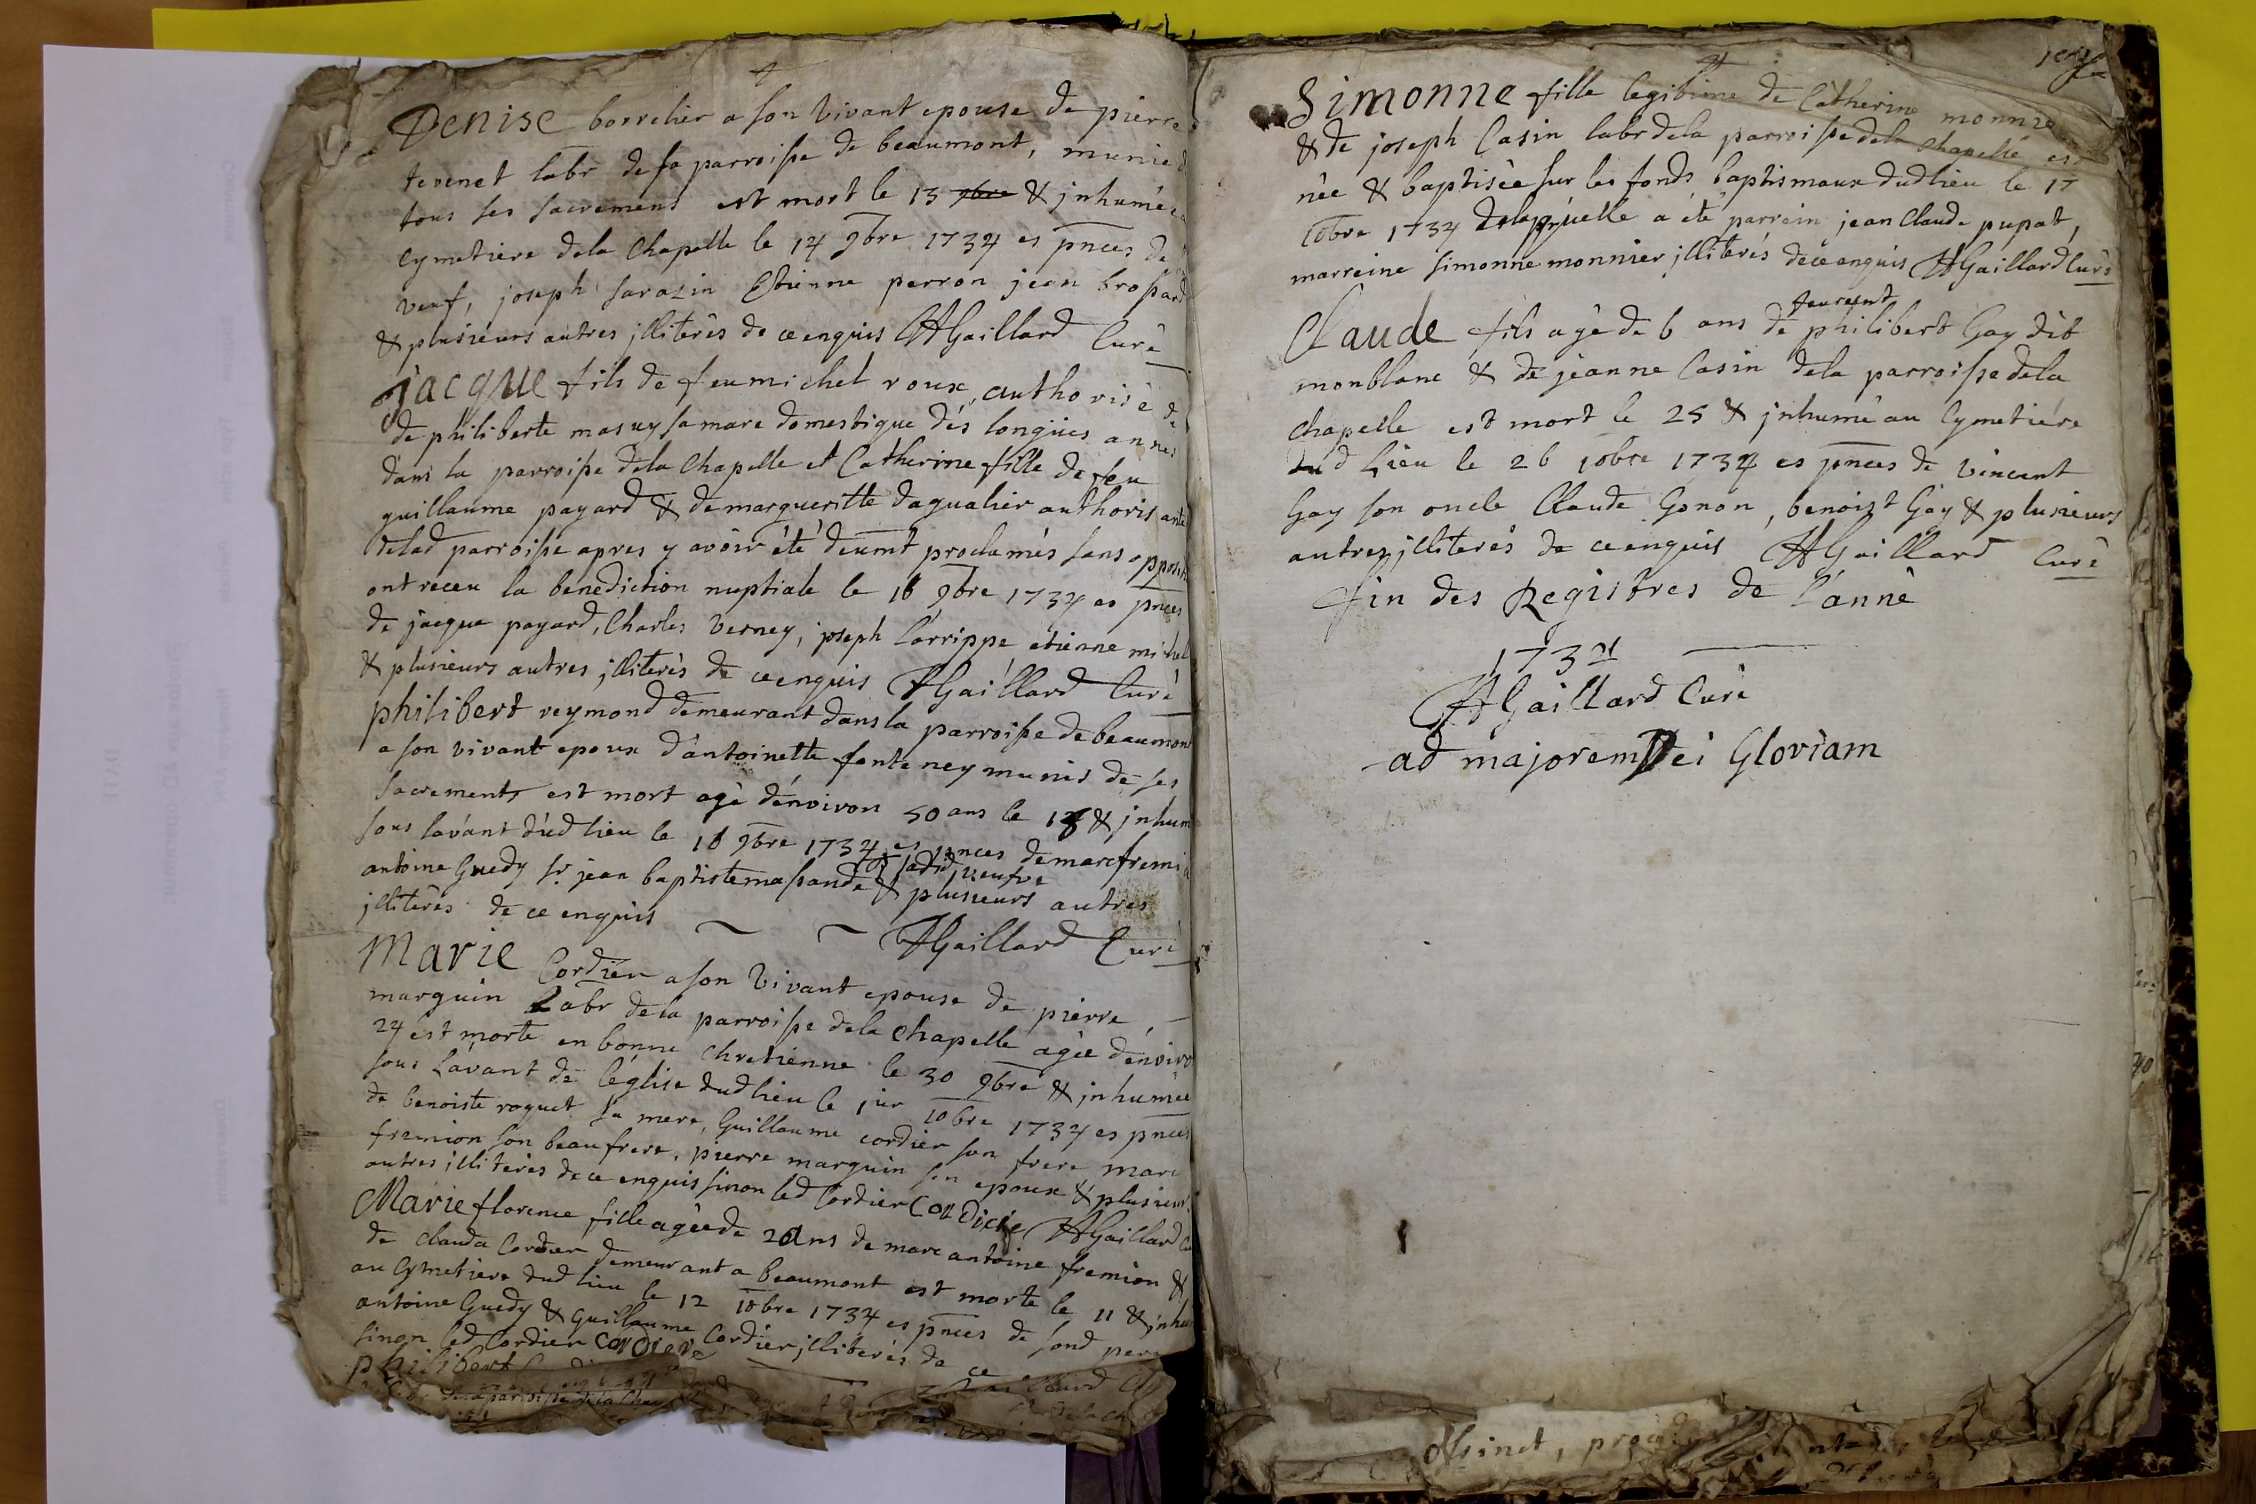 Denise borrelier a son vivant epouse de pierre
tevenet labr de sa parroisse de beaumont, munie d
tous ses sacremens est mort le 13 9bre & jnhumée
cymetiere dela Chapelle le 14 9bre 1734 es pnces de
veuf, joseph sarazin Etienne perron jean brossard
& plusieurs autres jlliterés de ce enquis AGaillard Curé
jacque fils de feu michel roux, authorisé de
de philiberte masuy sa mare domestique dés longues annes
dans la parroisse dela Chapelle et Catherine fille de feu
guillaume payard & de margueritte dagualier authorisante
delad parroisse apres y avoir été deumt proclamés sans opposit
ont receu la benediction nuptiale le 16 9bre 1734 es pnces
de jacque payard, Charles Verney, joseph Larrippe etienne michel
& plusieurs autres jlliterés de ce enquis AGaillard Curé
philibert reymond demeurant dans la parroisse de beaumont
a son vivant epoux d'antoinette fonteney munis de ses
sacrements est mort agé d'énviron 50 ans le 18 & jnhum
sous lavant dud lieu le 18 9bre 1734 es pnces de marc fremi
antoine Guedy sr jean baptiste massande & ladte veufve & plusieurs autres
jlliterés de ce enquis AGaillard Curé
Marie Cordier a son vivant epouse de pierre
marguin Labr dela parroisse dela Chapelle agée dénviro
24 est morte en bonne Chretienne le 30 9bre & jnhumée
sous Lávant de léglise dud lieu le jer 10bre 1734 es pnces
de benoiste roquet sa mere, Guillaume cordier son frere, marc
fremion son beaufrere, pierre marguin son epoux & plusieurs
autres jlliterés de ce enquis sinon led Cordier Cordiere AGaillard Cu
Marie florence fille agée de 2 ans de marc antoine fremion &
de clauda Cordier demeurant a beaumont est morte le 11 & jnhu
au Cymetiere dud lieu le 12 10bre 1734 es pnces de sond pere
antoine Guedy & Guillaume Cordier jlliterés de ce
sinon led Cordier cordiere
philibert
dela parroisse dela Cha
Simonne fille legitime de Catherine monnie
& de joseph Casin labr dela parroisse dela Chapelle est
née & baptisée sur les fonds baptismaux dud lieu le 17
10bre 1734 delaquelle a été parrein jean Claude pupat,
marreine simonne monnier jlliterés de ce enquis AGaillard Curé
Claude fils agé de 6 ans de feu philibert Gay dit
monblanc & de jeanne Casin dela parroisse dela
chapelle est mort le 25 & jnhumé au Cymetiére
dud Lieu le 26 10bre 1734 es pnces de Vincent
Gay son oncle Claude Gonon, benoist Gay & plusieurs
autres jlliterés de ce enquis AGaillard Curé
fin des Registres de l'anné
1734
AGaillard Curé
ad majorem Dei Gloriam